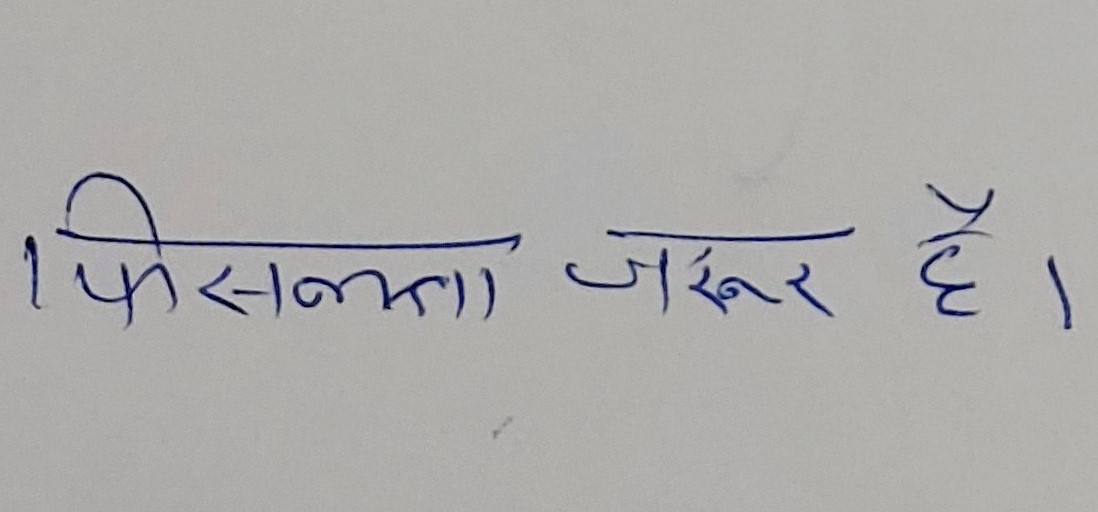 फिसलता जरूर है।